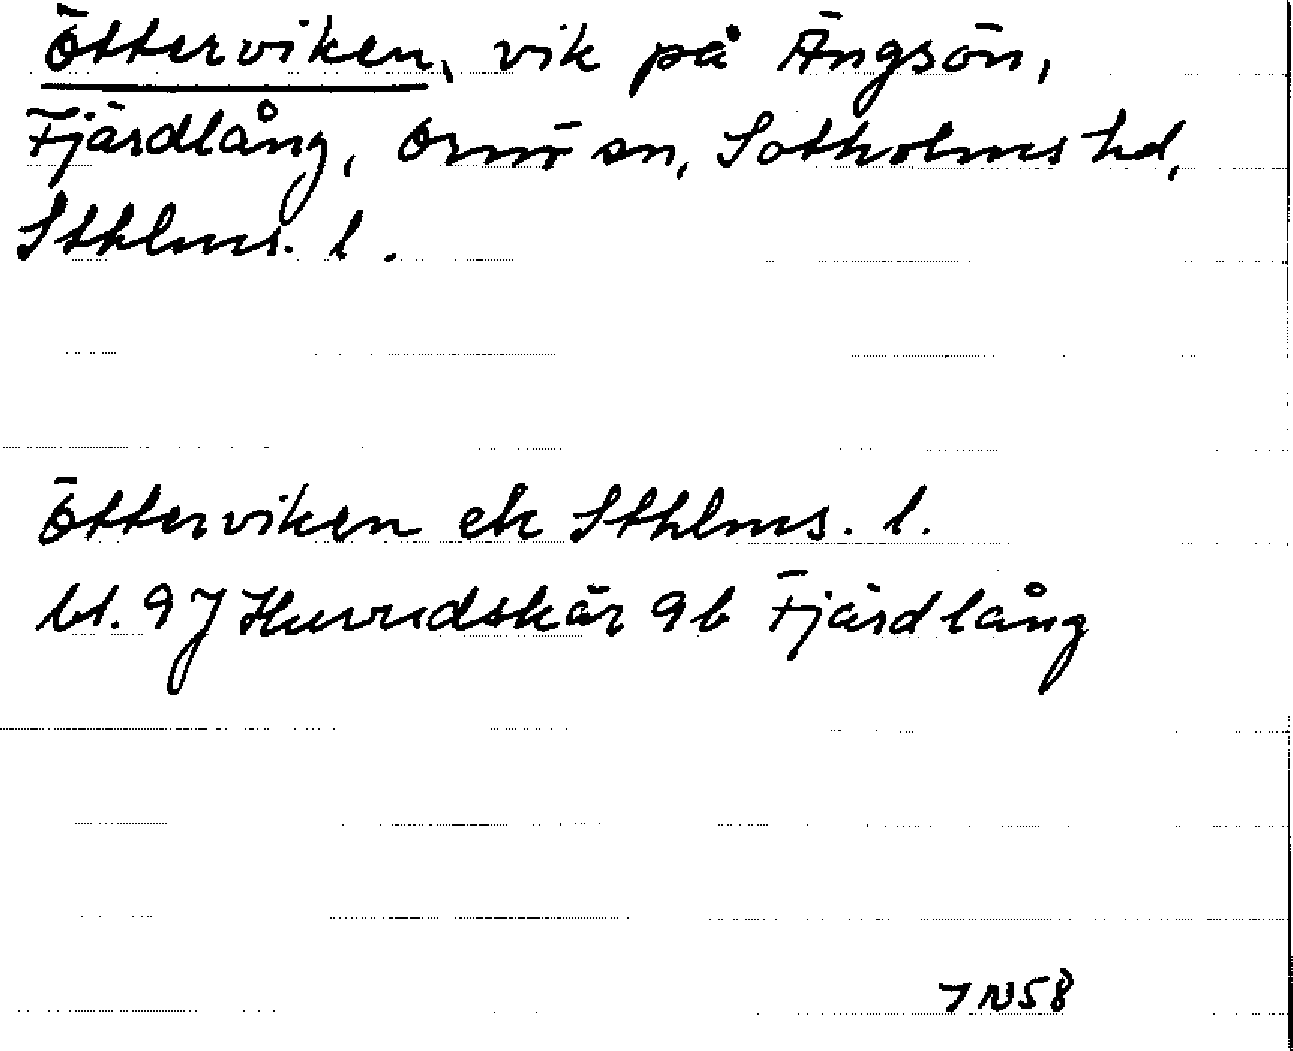 Ötterviken, vik på Ängsön,
Fjärdlång, Ornö sn, Sotholms hd,
Sthlms. l.
Ötterviken ek Sthlms. l.
bl. 9J Huvudskär 9b Fjärdlång
7N58